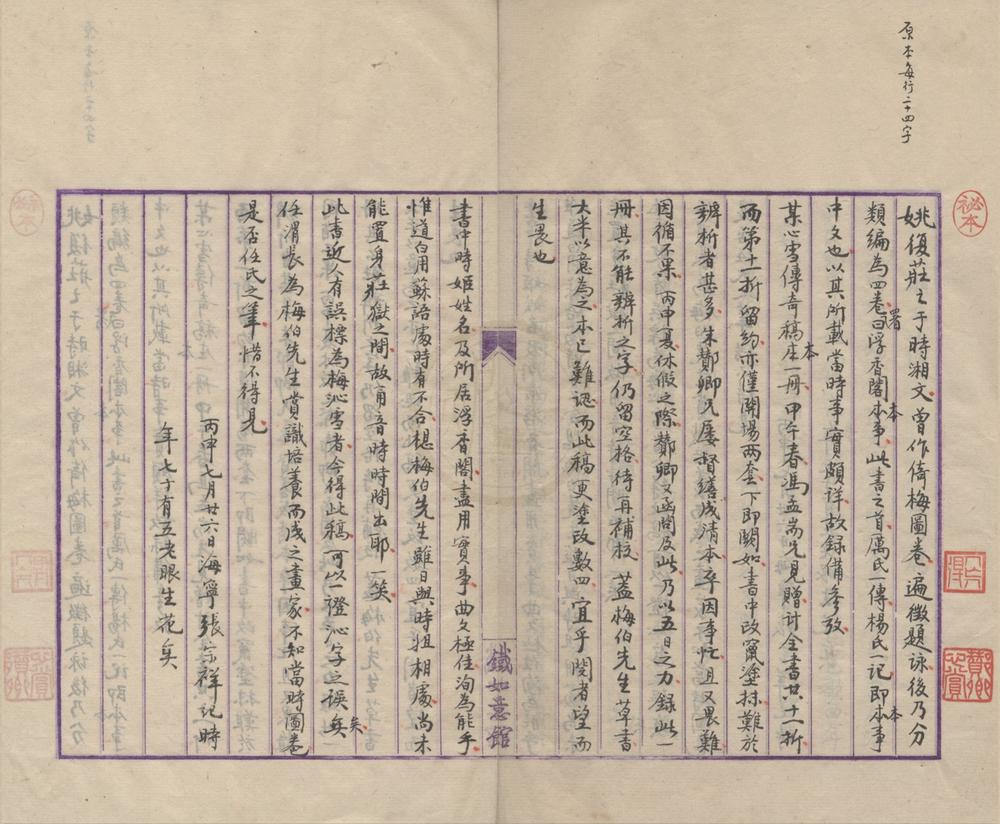 原本每行二十四字
祕本
姚復莊之于時湘文曾作倚梅圖卷遍徵題詠後乃分
類編為四卷署曰浮香閣本事此書之首厲氏一傳楊氏一記即本事
中文也以其所載當時事實頗詳故録備參攷
某心雪傳奇稿本一冊甲午春馮孟耑兄見贈計全書共十一折
而第十一折留約亦僅開場兩套下即闕如書中改竄塗抹難於
辨析者甚多朱酇卿兄屢督繕成清本卒因事忙且又畏難
因循不果丙申夏休假之際酇卿又函問及此乃以五日之力録此一
冊其不能辨析之字仍留空格待再補校蓋梅伯先生草書
大半以意為之本已難認而此稿更塗改數四宜乎閱者望而
生畏也
鐵如意館
書中時姬姓名及所居浮香閣盡用實事曲文極佳洵為能手
惟道白用蘇語處時有不合想梅伯先生雖日與時姐相處尚未
能置身莊獄之間故甬音時時開出耶一笑
此書近人有誤標為梅沁雪者今得此稿可以證沁字之誤矣
任渭長為梅伯先生賞識培養而成之畫家不知當時圖卷
是否任氏之筆惜不得見
丙申七月廿六日海寧張宗祥記時
年七十有五老眼生花矣